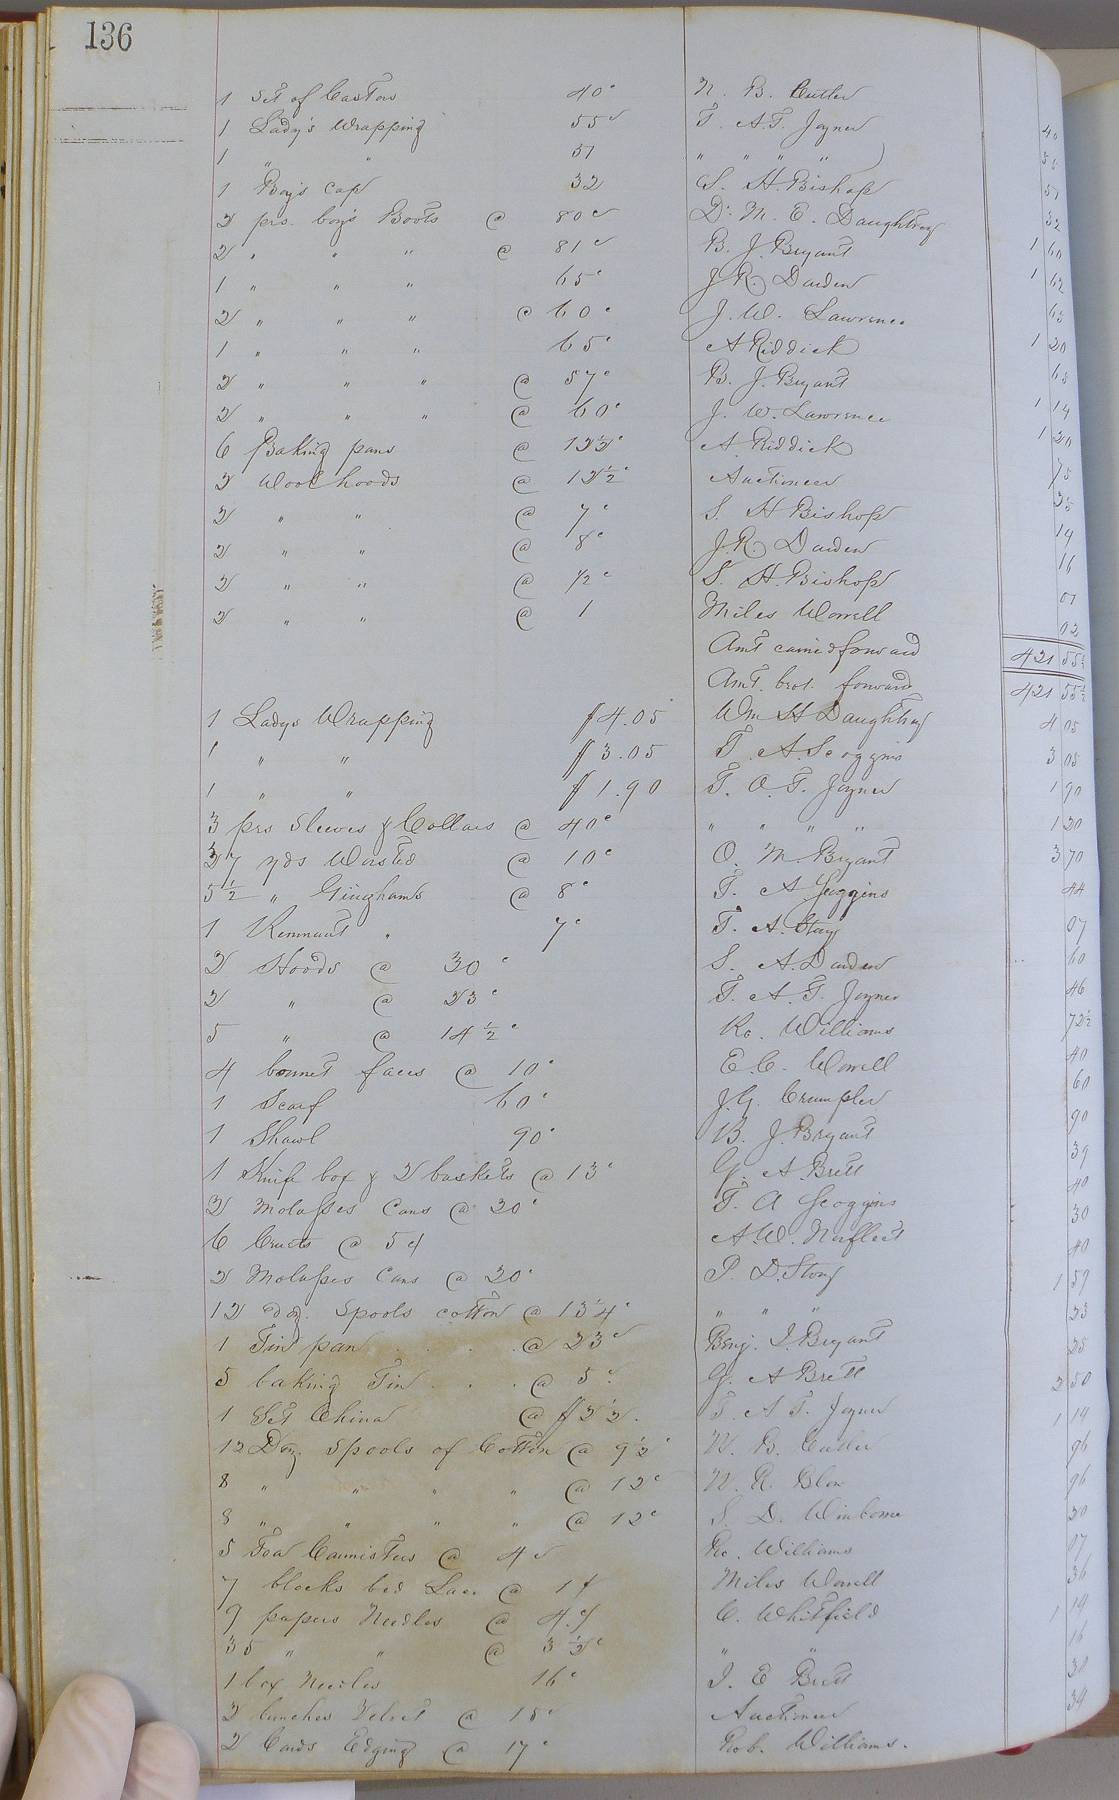 136
1 Set of Castors 40c N. B. Cutler 40
1 Lady's Wrapping 55c T. A. T. Joyner 55
1 " " 51 " " " " 51
1 Boy's cap 32 S. H. Bishop 32
2 prs. boy's Boots @ 80c Dr. M. E. Daughtrey 1 60
2 " " " @ 81c B. J. Bryant 1 62
1 " " " 65c J. R. Darden 65
2 " " " @ 60c J. W. Lawrence 1 20
1 " " " 65c A Riddick 65
2 " " " @ 57c B. J. Bryant 1 14
2 " " " @ 60c J. W. Lawrence 1 20
6 Baking pans @ 12½c A. Riddick 75
2 Wool hoods @ 12½c Auctioneer 25
2 " " @ 7c S. H Bishop 14
2 " " @ 8c J. R. Darden 16
2 " " @ ½c S. H. Bishop 01
2 " " @ 1 Miles Worrell 02
Amt carried forward 421 55½
Amt. brot. forward 421 55½
1 Ladys Wrapping $4.05 Wm H Daughtrey 4 05
1 " " $3.05 T. A. Scoggins 3 05
1 " " $1.90 T. A. T. Joyner 1 90
3 prs Sleeves & Collars @ 40c " " " " 1 20
37 yds Worsted @ 10c O. M Bryant 3 70
5½ " Ginghams @ 8c T. A Scoggins 44
1 Remnant " 7c T. A. Story 07
2 Hoods @ 30c S. A. Darden 60
2 " @ 23c T. A. T. Joyner 46
5 " @ 14½c Ro. Williams 72½
4 bonnet faces @ 10c E. C. Worrell 40
1 Scarf 60c J. G. Crumpler 60
1 Shawl 90c B. J. Bryant 90
1 Knife box & 2 baskets @ 13c G. A. Brett 39
2 Molasses Cans @ 20c T. A Scoggins 40
6 Cruets @ 5c A. W. Norfleet 30
2 Molasses Cans @ 20c P. D. Story 40
12 doz Spools cotton @ 13¼c " " " 1 59
1 Tin pan @ 23c Benj. J. Bryant 23
5 baking Tin @ 5c G. A Brett 25
1 Set China @ $2½. T. A T. Joyner 2 50
12 Doz Spools of Cotton @ 9½c N. B. Cutler 1 14
8 " " " " @ 12c W. R. Blow 96
8 " " " " @ 12c S. D. Winborne 96
5 Tea Cannisters @ 4c Ro. Williams 20
7 blocks bed Lace @ 1c Miles Worrell 07
9 papers Needles @ 4c C. Whitfield 36
35 " " @ 3½c " " 1 19
1 box Needles 16c J. E Brett 16
2 bunches Velvet @ 15c Auctioneer 30
2 Cards Edging @ 17c Rob. Williams. 34